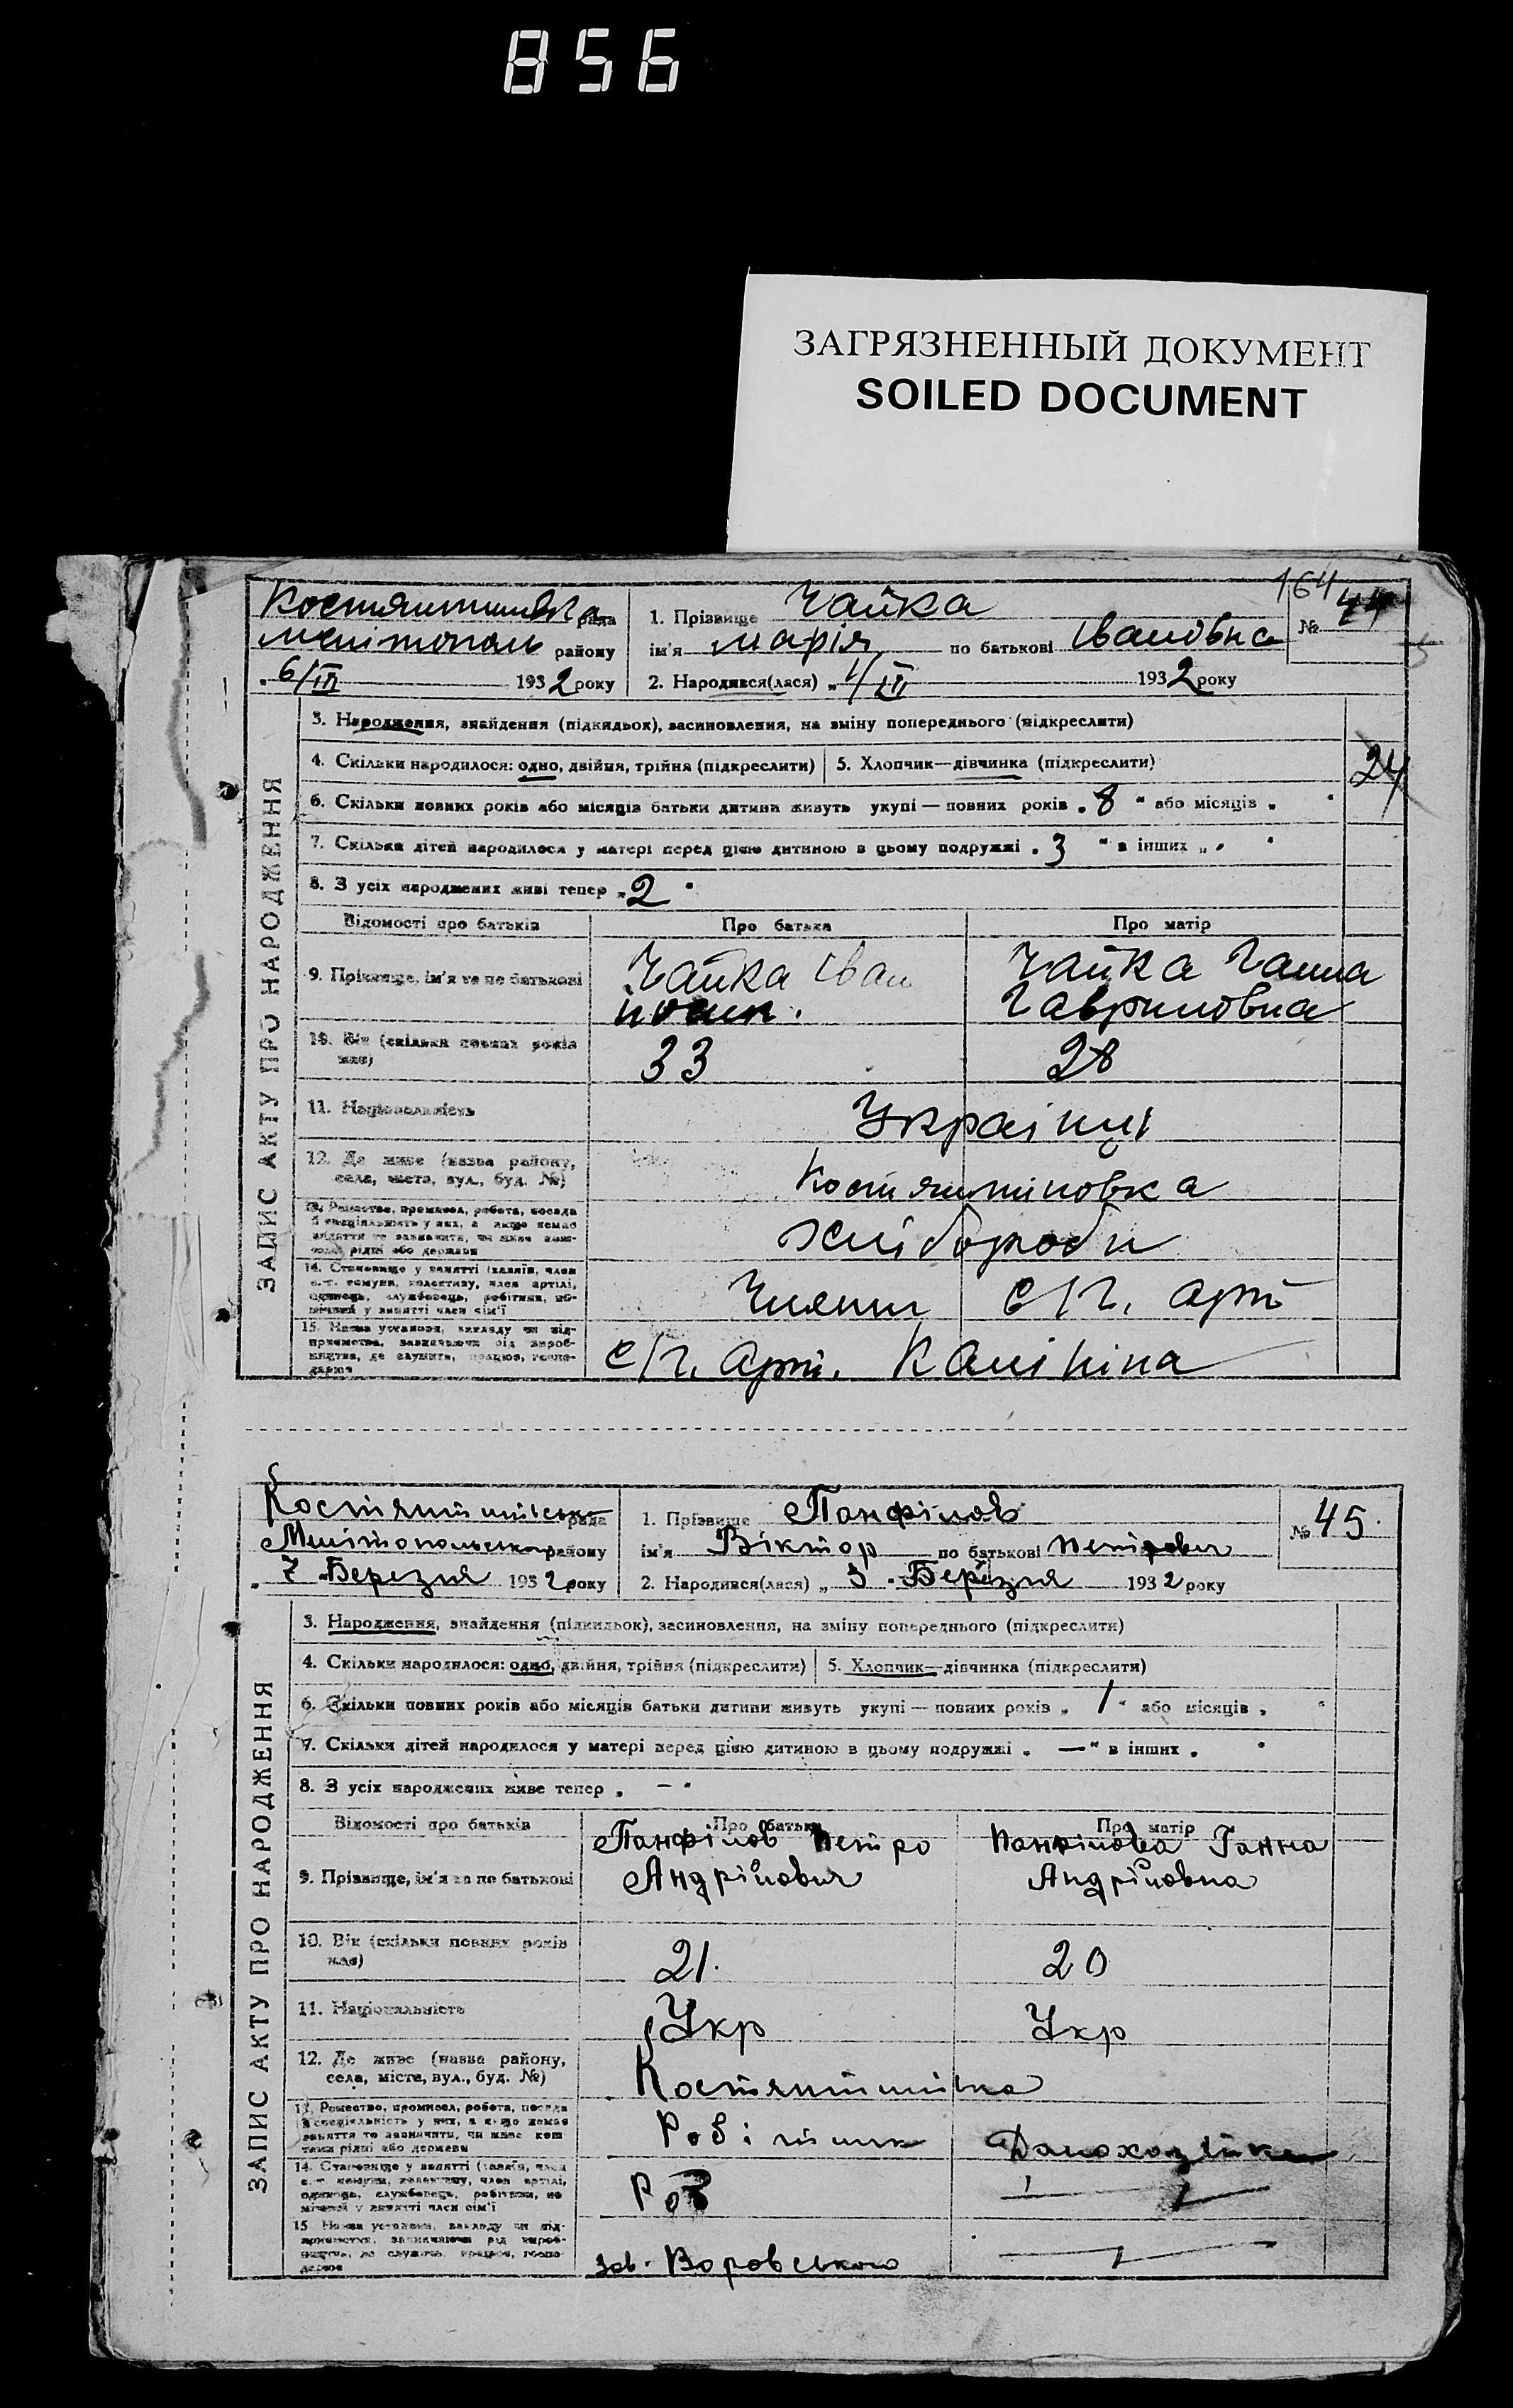 856
ЗАГРЯЗНЕННЫЙ ДОКУМЕНТ
SOILED DOCUMENT
164
рада
Мелітополь району
6/III 1932 року
1. Прізвище Чайка
ім'я Марія по батькові Івановна
2. Народився(лася) „ 1/III 1932 року
№ 44
ЗАПИС АКТУ ПРО НАРОДЖЕННЯ
3. Народження, знайдення (підкидьок), засиновлення, на зміну попереднього (підкреслити)
4. Скільки народилося: одно, двійня, трійня (підкреслити)
5. Хлопчик—дівчинка (підкреслити)
24
6. Скільки повних років або місяців батьки дитини живуть укупі — повних років „ 8 “ або місяців „ “
7. Скільки дітей народилося у матері перед цією дитиною в цьому подружжі „ 3 “ в інших „ “
8. З усіх народжених живі тепер „ 2 “
Відомості про батьків
Про батька
Про матір
9. Прізвище, ім'я та по батькові
Чайка Іван
Чайка Ганна
Гавриловна
10. Вік (скільки повних років має)
33
28
11. Національність
Українці
12. Де живе (назва району,
села, міста, вул., буд. №)
Костянтіновка
13. Ремество, промисел, робота, посада
й спеціяльність у них, а якщо немає
заняття то зазначити, чи живе кош-
тами рідні або держави
хлібороби
14. Становище у занятті (хазяїн, член
с.-г. комуни, колективу, член артілі,
одинець, службовець, робітник, по-
мічний у занятті член сім'ї
Члени с/г. арт
15. Назва установи, закладу чи під-
приємства, зазначаючи рід вироб-
ництва, де служить, працює, госпо-
дарює
с/г. арт. Калініна
рада
Мелітопольськ району
7 „Березня 1932 року
1. Прізвище Панфілов
ім'я Віктор по батькові Петрович
2. Народився(лася) „ 3 “ Березня 1932 року
№ 45.
ЗАПИС АКТУ ПРО НАРОДЖЕННЯ
3. Народження, знайдення (підкидьок), засиновлення, на зміну попереднього (підкреслити)
4. Скільки народилося: одно, двійня, трійня (підкреслити)
5. Хлопчик—дівчинка (підкреслити)
6. Скільки повних років або місяців батьки дитини живуть укупі — повних років „ 1 “ або місяців „ “
7. Скільки дітей народилося у матері перед цією дитиною в цьому подружжі „ — “ в інших „ “
8. З усіх народжених живе тепер „ — “
Відомості про батьків
Про батька
Про матір
9. Прізвище, ім'я та по батькові
Панфілов Петро
Андрійович
Панфілова Ганна
Андрійовна
10. Вік (скільки повних років
має)
21.
20
11. Національність
Укр
Укр
12. Де живе (назва району,
села, міста, вул., буд. №)
Костянтинівка
13. Ремество, промисел, робота, посада
й спеціяльність у них, а якщо немає
заняття то зазначити, чи живе кош-
тами рідні або держави
Робітник
Домохозяйка
14. Становище у занятті (хазяїн, член
с.-г. комуни, колективу, член артілі,
одинець, службовець, робітник, по-
мічний у занятті член сім'ї
Роб
15. Назва установи, закладу чи під-
приємства, зазначаючи рід вироб-
ництва, де служить, працює, госпо-
дарює
зав. Воровського